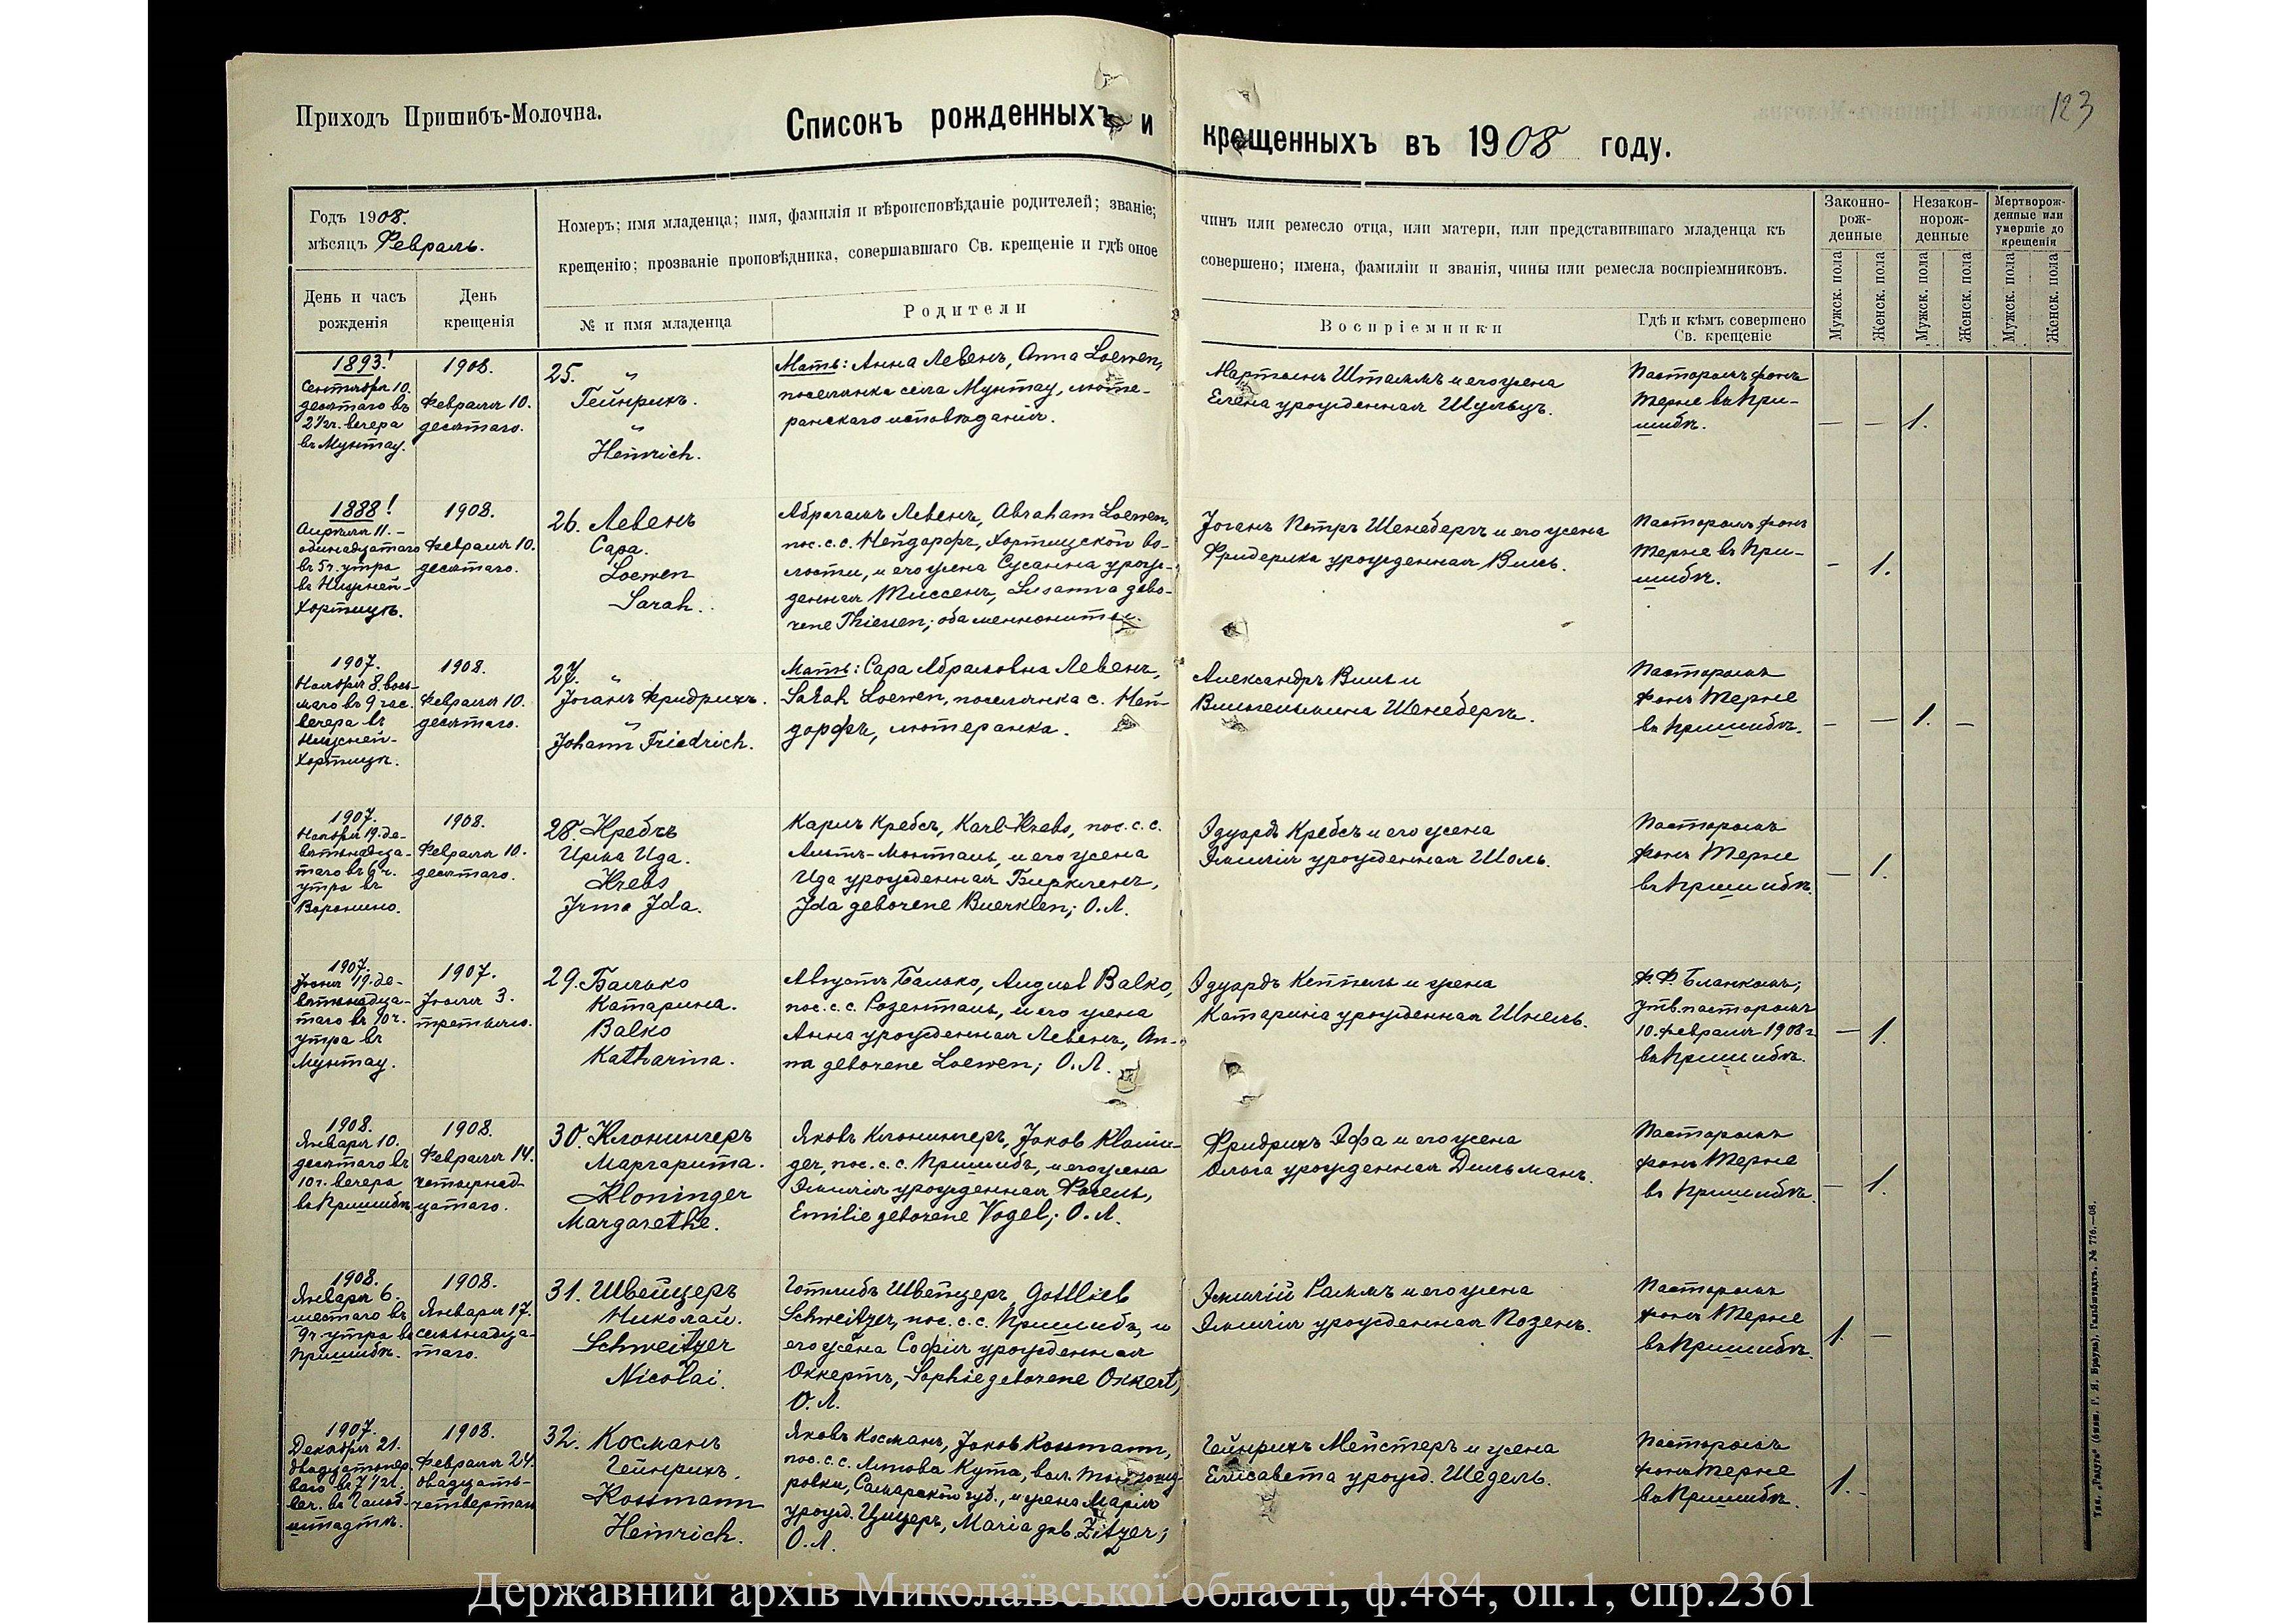 Приходъ Пришибъ-Молочна.
Списокъ рожденныхъ и крещенныхъ въ 1908 году.
123
Годъ 1908.
мѣсяцъ Февраль.
Номеръ; имя младенца; имя, фамилія и вѣроисповѣданіе родителей; званіе; чинъ или ремесло отца, или матери, или представившаго младенца къ
крещенію; прозваніе проповѣдника, совершавшаго Св. крещеніе и гдѣ оное совершено; имена, фамиліи и званія, чины или ремесла воспріемниковъ.
Законно-
рож-
денные
Незакон-
норож-
денные
Мертворож-
денные или
умершіе до
крещенія
День и часъ
рожденія
День
крещенія
№ и имя младенца
Родители
Воспріемники
Гдѣ и кѣмъ совершено
Св. крещеніе
Мужск. пола
Женск. пола
Мужск. пола
Женск. пола
Мужск. пола
Женск. пола
1893!
Сентября 10.
десятаго въ
2½ч. вечера
въ Мунтау.
1908.
Февраля 10.
десятаго.
25. "
Гейнрихъ.
"
Heinrich.
Мать: Анна Левенъ, Anna Loewen,
поселянка села Мунтау, люте-
ранскаго исповѣданія.
Мартинъ Штаммъ и его жена
Елена урожденная Шульцъ.
Пасторомъ фонъ
Терне въ При-
шибѣ.
— — 1.
1888!
Апрѣля 11. -
одинадцатаго
въ 5ч. утра
въ Нижней-
Хортицѣ.
1908.
Февраля 10.
десятаго.
26. Левенъ
Сара.
Loewen
Sarah.
Абрагамъ Левенъ, Abraham Loewen,
пос. с. с. Нейдорфъ, Хортицской во-
лости, и его жена Сусанна урож-
денная Тиссенъ, Susanna gebo-
rene Thiessen; оба меннониты.
Іоганъ Петръ Шенебергъ и его жена
Фридерика урожденная Вилъ.
Пасторомъ фонъ
Терне въ При-
шибѣ.
- 1.
1907.
Ноября 8. вось-
маго въ 9 час.
вечера въ
Нижней-
Хортицѣ.
1908.
Февраля 10.
десятаго.
27. "
Іоганъ Фридрихъ.
"
Johann Friedrich.
Мать: Сара Абрамовна Левенъ,
Sarah Loewen, поселянка с. Ней-
дорфъ, лютеранка.
Александръ Вилъ и
Вильгельмина Шенебергъ.
Пасторомъ
фонъ Терне
въ Пришибѣ.
- — 1. -
1907.
Ноября 19. де-
вятнадца-
таго въ 6 ч.
утра въ
Воронино.
1908.
Февраля 10.
десятаго.
28. Кребсъ
Ирма Ида.
Krebs
Irma Ida.
Карлъ Кребсъ, Karl Krebs, пос. с. с.
Альтъ-Монталь, и его жена
Ида урожденная Биркленъ,
Ida geborene Buerklen; О. Л.
Эдуардъ Кребсъ и его жена
Эмилія урожденная Шоль.
Пасторомъ
фонъ Терне
въ Пришибѣ.
— 1.
1907.
Іюня 19. де-
вятнадца-
таго въ 10 ч.
утра въ
Мунтау.
1907.
Іюля 3.
третьяго.
29. Балько
Катарина.
Balko
Katharina.
Августъ Балько, August Balko,
пос. с. с. Розенталь, и его жена
Анна урожденная Левенъ, An-
na geborene Loewen; О. Л.
Эдуардъ Кеттель и жена
Катарина урожденная Шнель.
Ф. Ф. Бланкомъ;
утв. пасторомъ
10. Февраля 1908 г.
въ Пришибѣ.
— 1.
1908.
Января 10.
десятаго въ
10 ч. вечера
въ Пришибѣ.
1908.
Февраля 14.
четырнад-
цатаго.
30. Клонингеръ
Маргарита.
Kloninger
Margarethe.
Яковъ Клонингеръ, Jakob Klonin-
ger, пос. с. с. Пришибъ, и его жена
Эмилія урожденная Фогель,
Emilie geborene Vogel; О. Л.
Фридрихъ Эфа и его жена
Ольга урожденная Дильманъ.
Пасторомъ
фонъ Терне
въ Пришибѣ.
— 1.
1908.
Января 6.
шестаго въ
9 ч. утра въ
Пришибѣ.
1908.
Января 17.
семьнадца-
таго.
31. Швейцеръ
Николай.
Schweitzer
Nicolai.
Готлибъ Швейцеръ, Gottlieb
Schweitzer, пос. с. с. Пришибъ, и
его жена Софія урожденная
Оккертъ, Sophie geborene Okkert,
О. Л.
Эмилій Раммъ и его жена
Эмилія урожденная Розенъ.
Пасторомъ
фонъ Терне
въ Пришибѣ.
1. —
1907.
Декабря 21.
двадцатьпер-
ваго въ 7½ч.
веч. въ Гальб-
штадтѣ.
1908.
Февраля 24.
двадцать-
четвертаго
32. Косманъ
Гейнрихъ.
Kossmann
Heinrich.
Яковъ Косманъ, Jakob Kossmann,
пос. с. с. Кута, вол.
ровки, Самарской губ., и жена Марія
урожд. Цицеръ, Maria geb. Zitzer;
О. Л.
Гейнрихъ Мейстеръ и жена
Елисавета урожд. Шедель.
Пасторомъ
фонъ Терне
въ Пришибѣ.
1.
Тип. „Радуга" (бывш. Г. Я. Брауна), Гальбштадтъ. № 776.—08.
Державний архів Миколаївської області, ф.484, оп.1, спр.2361